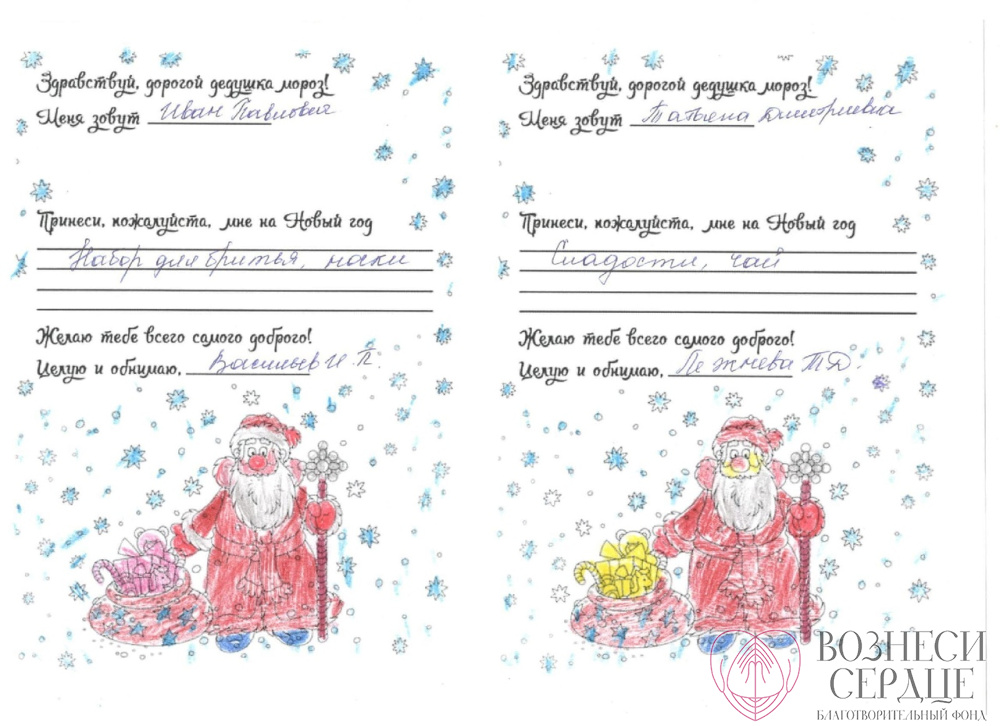 Здравствуй, дорогой дедушка мороз!
Меня зовут Иван Павлович
Принеси, пожалуйста, мне на Новый год
Набор для бритья, носки
Желаю тебе всего самого доброго!
Целую и обнимаю, Васильев И. П.
Здравствуй, дорогой дедушка мороз!
Меня зовут Татьяна Дмитриевна
Принеси, пожалуйста, мне на Новый год
Сладости, чай
Желаю тебе всего самого доброго!
Целую и обнимаю, Лежнева Т Д.
ВОЗНЕСИ
СЕРДЦЕ
БЛАГОТВОРИТЕЛЬНЫЙ ФОНД